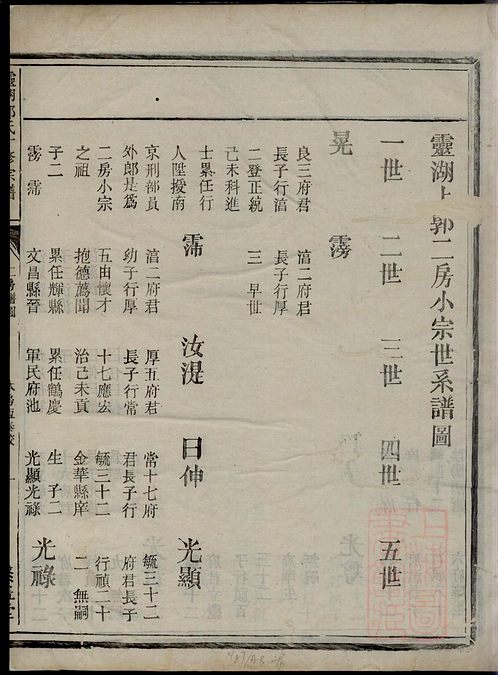 靈湖上郭二房小宗世系譜圖
一世 二世 三世 四世 五世
晃 霶
良三府君 㵎二府君
長子行㵎 長子行厚
二登正統 三 早世
己未科進
士累任行
人陞授南 霈 汝湜 日伸 光顯
京刑部員 㵎二府君 厚五府君 常十七府 毓三十二
外郎是為 幼子行厚 長子行常 君長子行 府君長子
二房小宗 五由懷才 十七應宏 毓三十二 行禎二十
之祖 抱德薦聞 治己未貢 金華縣庠 二 無嗣
子二 累任輝縣 累任鶴慶 生 子二 光祿
霶 霈 文昌縣晉 軍民府池 光顯光祿
宗譜
二房譜圖